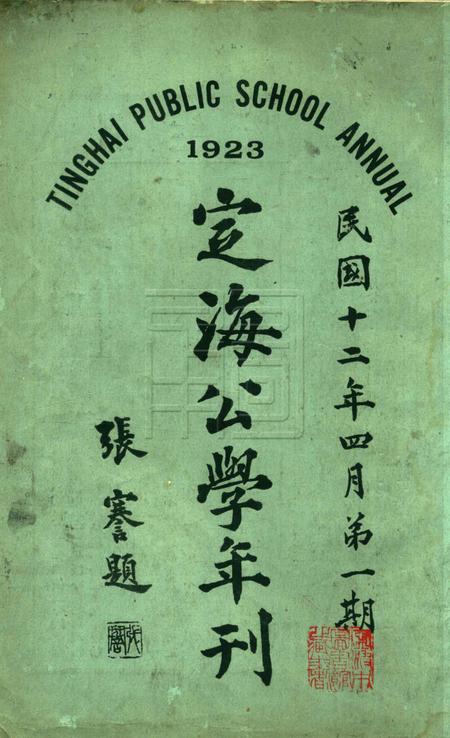 TINGHAI PUBLIC SCHOOL ANNUAL
1923
民國十二年四月第一期
定海公學年刊
張謇題